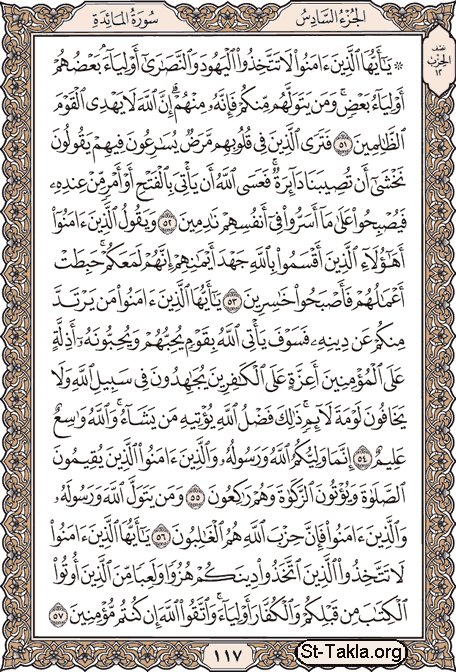 الجزء السادس
سورة المائدة
نصف
الحزب
١٢
۞ يَٰٓأَيُّهَا ٱلَّذِينَ ءَامَنُوا۟ لَا تَتَّخِذُوا۟ ٱلْيَهُودَ وَٱلنَّصَٰرَىٰٓ أَوْلِيَآءَ بَعْضُهُمْ
أَوْلِيَآءُ بَعْضٍ وَمَن يَتَوَلَّهُم مِّنكُمْ فَإِنَّهُۥ مِنْهُمْ إِنَّ ٱللَّهَ لَا يَهْدِى ٱلْقَوْمَ
ٱلظَّٰلِمِينَ ٥١ فَتَرَى ٱلَّذِينَ فِى قُلُوبِهِم مَّرَضٌ يُسَٰرِعُونَ فِيهِمْ يَقُولُونَ
نَخْشَىٰٓ أَن تُصِيبَنَا دَآئِرَةٌ فَعَسَى ٱللَّهُ أَن يَأْتِىَ بِٱلْفَتْحِ أَوْ أَمْرٍ مِّنْ عِندِهِۦ
فَيُصْبِحُوا۟ عَلَىٰ مَآ أَسَرُّوا۟ فِىٓ أَنفُسِهِمْ نَٰدِمِينَ ٥٢ وَيَقُولُ ٱلَّذِينَ ءَامَنُوٓا۟
أَهَٰٓؤُلَآءِ ٱلَّذِينَ أَقْسَمُوا۟ بِٱللَّهِ جَهْدَ أَيْمَٰنِهِمْ إِنَّهُمْ لَمَعَكُمْ حَبِطَتْ
أَعْمَٰلُهُمْ فَأَصْبَحُوا۟ خَٰسِرِينَ ٥٣ يَٰٓأَيُّهَا ٱلَّذِينَ ءَامَنُوا۟ مَن يَرْتَدَّ
مِنكُمْ عَن دِينِهِۦ فَسَوْفَ يَأْتِى ٱللَّهُ بِقَوْمٍ يُحِبُّهُمْ وَيُحِبُّونَهُۥٓ أَذِلَّةٍ
عَلَى ٱلْمُؤْمِنِينَ أَعِزَّةٍ عَلَى ٱلْكَٰفِرِينَ يُجَٰهِدُونَ فِى سَبِيلِ ٱللَّهِ وَلَا
يَخَافُونَ لَوْمَةَ لَآئِمٍ ذَٰلِكَ فَضْلُ ٱللَّهِ يُؤْتِيهِ مَن يَشَآءُ وَٱللَّهُ وَٰسِعٌ
عَلِيمٌ ٥٤ إِنَّمَا وَلِيُّكُمُ ٱللَّهُ وَرَسُولُهُۥ وَٱلَّذِينَ ءَامَنُوا۟ ٱلَّذِينَ يُقِيمُونَ
ٱلصَّلَوٰةَ وَيُؤْتُونَ ٱلزَّكَوٰةَ وَهُمْ رَٰكِعُونَ ٥٥ وَمَن يَتَوَلَّ ٱللَّهَ وَرَسُولَهُۥ
وَٱلَّذِينَ ءَامَنُوا۟ فَإِنَّ حِزْبَ ٱللَّهِ هُمُ ٱلْغَٰلِبُونَ ٥٦ يَٰٓأَيُّهَا ٱلَّذِينَ ءَامَنُوا۟
لَا تَتَّخِذُوا۟ ٱلَّذِينَ ٱتَّخَذُوا۟ دِينَكُمْ هُزُوًا وَلَعِبًا مِّنَ ٱلَّذِينَ أُوتُوا۟
ٱلْكِتَٰبَ مِن قَبْلِكُمْ وَٱلْكُفَّارَ أَوْلِيَآءَ وَٱتَّقُوا۟ ٱللَّهَ إِن كُنتُم مُّؤْمِنِينَ ٥٧
١١٧
St-Takla.org